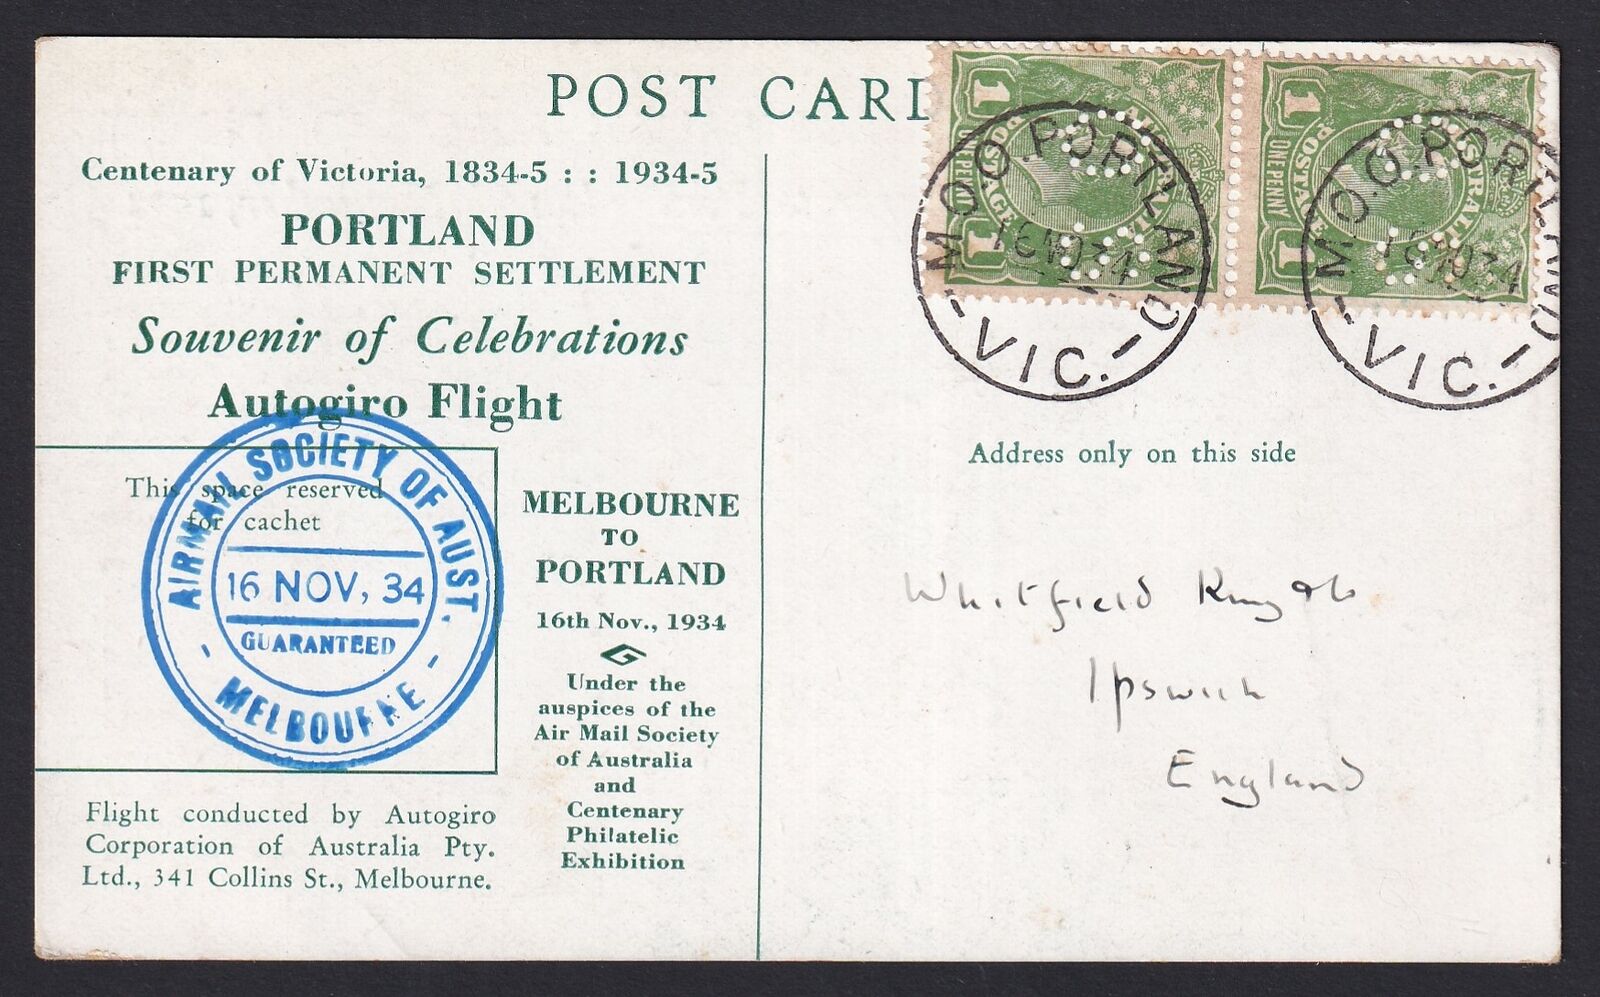 POST CARD
Centenary of Victoria, 1834-5 : : 1934-5
PORTLAND
FIRST PERMANENT SETTLEMENT
Souvenir of Celebrations
Autogiro Flight
This space reserved
for cachet
AIRMAIL SOCIETY OF AUST.
16 NOV, 34
GUARANTEED
- MELBOURNE -
MELBOURNE
TO
PORTLAND
16th Nov., 1934
G
Under the
auspices of the
Air Mail Society
of Australia
and
Centenary
Philatelic
Exhibition
Flight conducted by Autogiro
Corporation of Australia Pty.
Ltd., 341 Collins St., Melbourne.
1 POSTAGE 1
ONE PENNY
OS
M.O.O. PORTLAND
16 NO 34
- VIC. -
1 POSTAGE 1
AUSTRALIA
ONE PENNY
OS
M.O.O. PORTLAND
16 NO 34
- VIC. -
Address only on this side
Whitfield King & Co
Ipswich
England